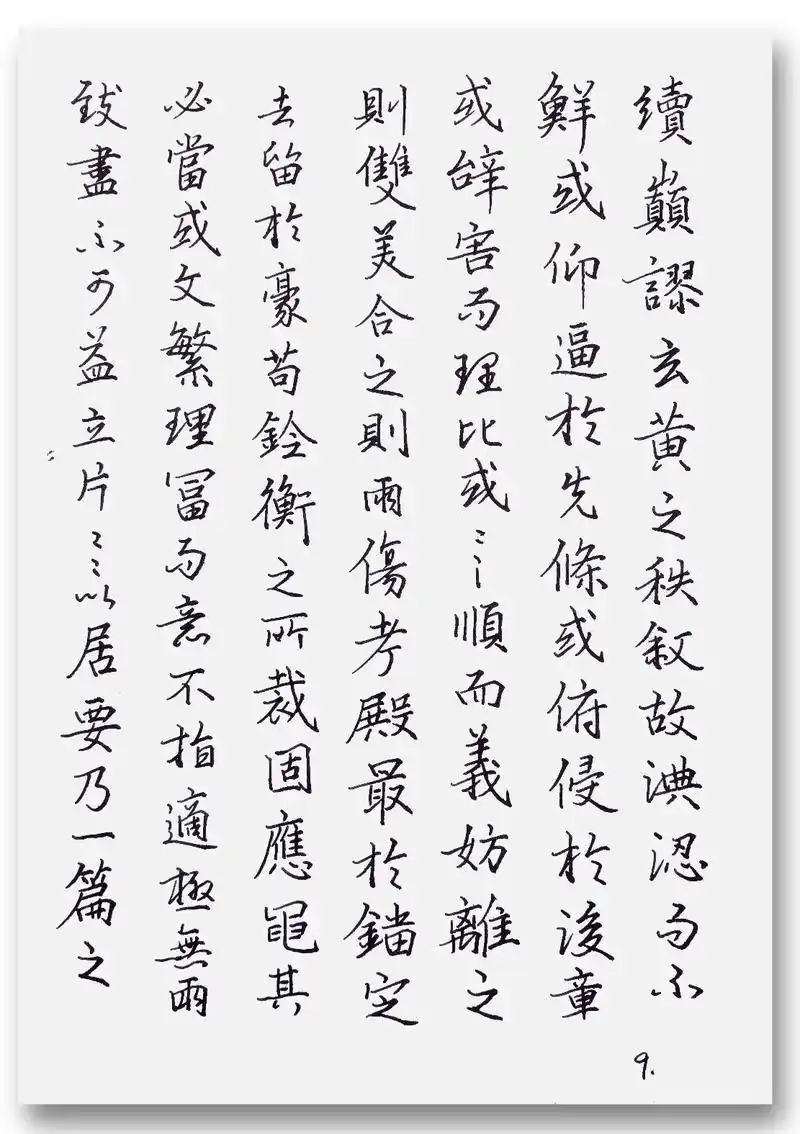 續巔謬玄黃之秩叙故淟涊而不
鮮或仰逼於先條或俯侵於後章
或辞害而理比或〻言順而義妨離之
則雙美合之則兩傷考殿最於錙定
去留於豪苟銓衡之所裁固應繩其
必當或文繁理富而意不指適極無兩
致盡不可益立片〻言以居要乃一篇之
9.